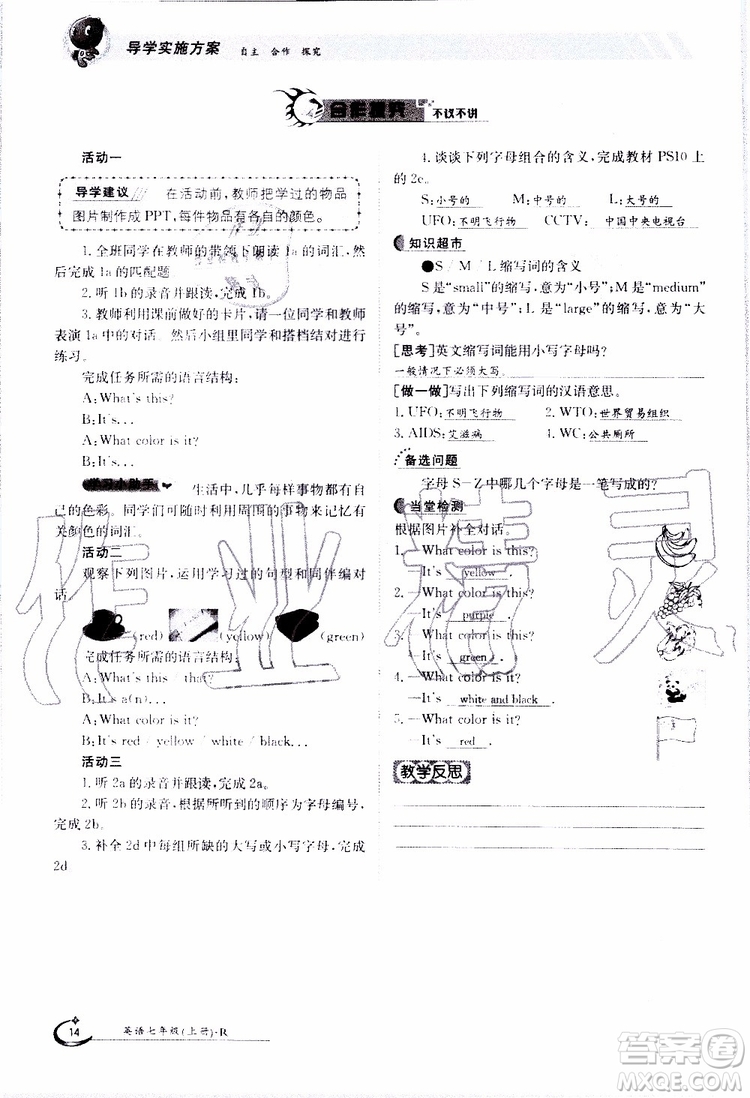 导学实施方案 自主 合作 探究
合作探究 不议不讲
活动一
导学建议 在活动前,教师把学过的物品
图片制作成PPT,每件物品有各自的颜色。
1.全班同学在教师的带领下朗读1a的词汇,然
后完成1a的匹配题
2.听1b的录音并跟读,完成1b。
3.教师利用课前做好的卡片,请一位同学和教师
表演1a中的对话。然后小组里同学和搭档结对进行
练习。
完成任务所需的语言结构:
A:What's this?
B:It's...
A:What color is it?
B:It's...
学习小助手 生活中,几乎每样事物都有自
己的色彩。同学们可以利用周围的事物来记忆有
关颜色的词汇。
活动二
观察下列图片,运用学习过的句型和同伴编对
话
(red) (yellow) (green)
完成任务所需的语言结构:
A:What's this?
B:It's a(n)...
A:What color is it?
B:It's red/yellow/white/black...
活动三
1.听2a的录音并跟读,完成2a。
2.听2b的录音,根据所听到的顺序给字母编号,
完成2b。
3.补全2d中每组所缺的大写或小写字母,完成
2d
4.谈谈下列字母组合的含义,完成教材PS10上
的2e。
S:小号的 M:中号的 L:大号的
UFO:不明飞行物 CCTV:中国中央电视台
知识超市
●S/M/L缩写词的含义
S是“small”的缩写,意为“小号”;M是“medium”
的缩写,意为“中号”;L是“large”的缩写,意为“大
号”。
[思考]英文缩写词能用小写字母吗?
一般情况下必须大写。
[做一做]写出下列缩写词的汉语意思。
1.UFO:不明飞行物 2.WTO:世界贸易组织
3.AIDS:艾滋病 4.WC:公共厕所
备选问题
字母S-Z中哪几个字母是一笔写成的?
当堂检测
根据图片补全对话。
1.—What color is this?
—It's yellow.
2.—What color is this?
—It's purple.
3.—What color is it?
—It's green.
4.—What color is it?
—It's white and black.
5.—What color is it?
—It's red.
教学反思
14 英语七年级(上册)·R
作业精灵
答案圈
MXQE.COM